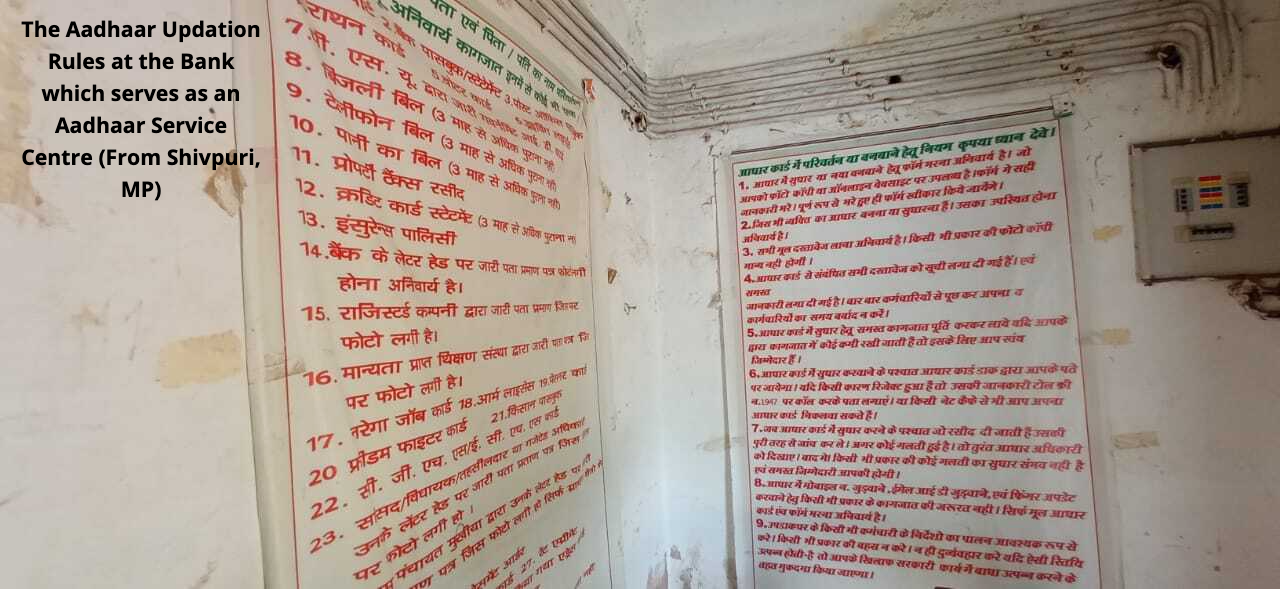 The Aadhaar Updation
Rules at the Bank
which serves as an
Aadhaar Service
Centre (From Shivpuri,
MP)
पता एवं पिता / पति का नाम
अनिवार्य कागजात इनमें से कोई भी
राशन कार्ड
पासबुक/स्टेटमेंट 3.पोस्ट
7. पी. एस. यू. द्वारा जारी
8. बिजली बिल (3 माह से अधिक पुराना नहीं
9. टेलीफोन बिल (3 माह से अधिक पुराना नहीं
10. पानी का बिल (3 माह से अधिक पुराना नहीं)
11. प्रोपर्टी टैक्स रसीद
12. क्रडिट कार्ड स्टेटमेंट (3 माह से अधिक पुराना
13. इंसुरेन्स पालिसी
14.बैंक के लेटर हेड पर जारी पता प्रमाण पत्र
होना अनिवार्य है।
15. राजिस्टर्ड कम्पनी द्वारा जारी पता प्रमाण
फोटो लगी है।
16. मान्यता प्राप्त शिक्षण संस्था द्वारा जारी पता पत्र
पर फोटो लगी है।
17. नरेगा जॉब कार्ड 18.आर्म लाइसेंस 19.पेंशनर कार्ड
20 फ्रीडम फाइटर कार्ड 21.किसान पासबुक
22. सी. जी. एच. एस/ई. सी. एच. एस कार्ड
23. सांसद/विधायक/तहसीलदार या गजेटेड अधिकारी
उनके लेटर हेड पर जारी पता प्रमाण पत्र जिस
पर फोटो लगी हो ।
पंचायत मुखीया द्वारा उनके लेटर हेड पर
पत्र जिस फोटो लगी हो सिर्फ
आधार कार्ड में परिवर्तन या बनवाने हेतु नियम कृपया ध्यान देवे।
1. आधार में सुधार या नया बनवाने हेतु फॉर्म भरना अनिवार्य है। जो
आपको फोटो कॉपी या ऑनलाइन वेबसाइट पर उपलब्ध है।फॉर्म मे सही
जानकारी भरे। पूर्ण रूप से भरे हुए ही फॉर्म स्वीकार किये जायेंगे।
2.जिस भी व्यक्ति का आधार बनना या सुधारना हैं। उसका उपस्थित होना
अनिवार्य है।
3. सभी मूल दस्तावेज लाना अनिवार्य है। किसी भी प्रकार की फोटो कॉपी
मान्य नही होगी ।
4.आधार कार्ड से संबंधित सभी दस्तावेज को सूची लगा दी गई हैं। एवं
समस्त
जानकारी लगा दी गई है। बार बार कर्मचारियों से पूछ कर अपना व
कर्मचारियों का समय बर्बाद न करें।
5.आधार कार्ड में सुधार हेतू समस्त कागजात पूर्ति करकर लाये यदि आपके
द्वारा कागजात में कोई कमी रखी जाती है तो इसके लिए आप स्वंय
जिम्मेदार हैं ।
6.आधार कार्ड में सुधार करवाने के पश्चात आधार कार्ड डाक द्वारा आपके पते
पर जायेगा। यदि किसी कारण रिजेक्ट हुआ हैं तो उसकी जानकारी टोल फ्री
न.1947 पर कॉल करके पता लगाएं। या किसी नेट कैफे से भी आप अपना
आधार कार्ड निकलवा सकते है।
7.जब आधार कार्ड में सुधार करने के पश्चात जो रसीद दी जाती हैं उसकी
पुरी तरह से जांच कर ले। अगर कोई गलती हुई है। तो तुरंत आधार अधिकारी
को दिखाए। बाद में। किसी भी प्रकार की कोई गलती का सुधार संभव नही है
एवं समस्त जिम्मेदारी आपकी होगी।
8.आधार में मोबाइल न. जुड़वाने , ईमेल आई डी जुड़वाने, एवं फिंगर अपडेट
करवाने हेतु किसी भी प्रकार के कागजात की जरूरत नही। सिर्फ मूल आधार
कार्ड एंव फॉर्म भरना अनिवार्य है।
9.उपडाकघर के किसी भी कर्मचारी के निर्देशो का पालन आवश्यक रूप से
करे। किसी भी प्रकार की बहस न करे। न ही दुर्व्यवहार करे यदि ऐसी स्तिथि
उत्पन्न होती है तो आपके खिलाफ सरकारी कार्य में बाधा उत्पन्न करने के
तहत मुकदमा किया जाएगा।